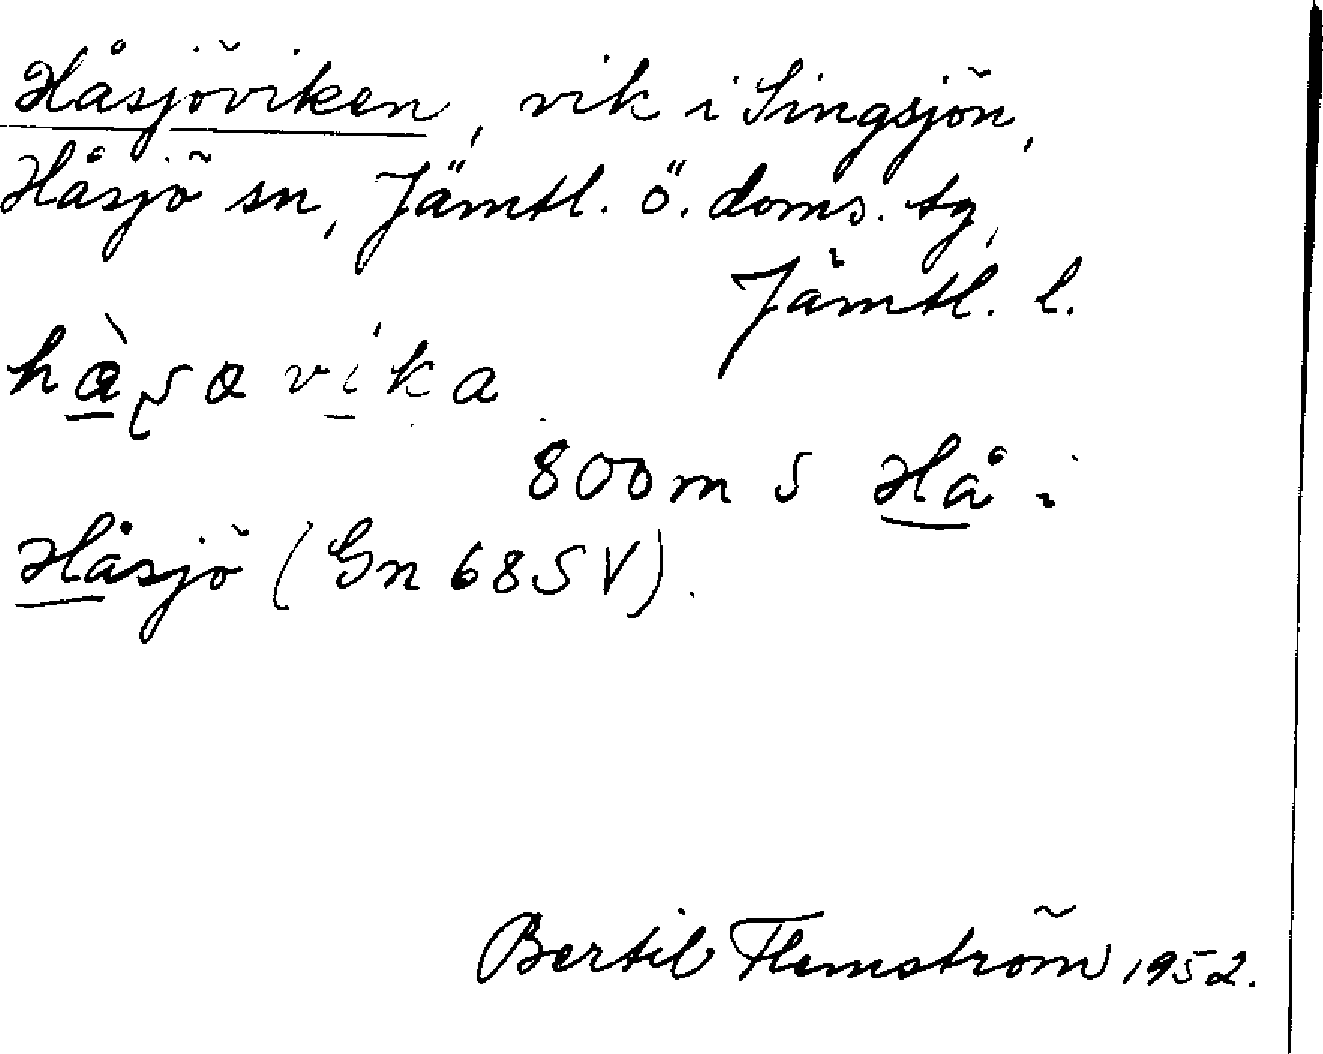 Håsjöviken, vik i Singsjön,
Håsjö sn, Jämtl. ö. doms. tg,
Jämtl. l.
800 m S Hå i
Håsjö (Gn 68 SV).
Bertil Flemström 1952.